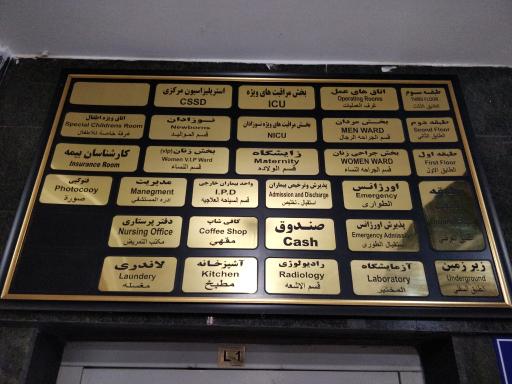 طبقه سوم
THIRD FLOOR
الطابق الثالث
اتاق های عمل
Operating Rooms
غرف العمليات
بخش مراقبت های ویژه
ICU
استریلیزاسیون مرکزی
CSSD
طبقه دوم
Seond Floor
الطابق الثاني
بخش مردان
MEN WARD
قسم الجراحه الرجال
بخش مراقبت های ویژه نوزادان
NICU
نوزادان
Newborns
قسم المواليد
اتاق ویژه اطفال
Special Childrens Room
غرفة خاصة للاطفال
طبقه اول
First Floor
الطابق الاول
بخش جراحی زنان
WOMEN WARD
قسم الجراحه النساء
زایشگاه
Maternity
قسم الولاده
بخش زنان (vip)
Women V.I.P Ward
قسم النساء
کارشناسان بیمه
Insurance Room
اورژانس
Emergency
الطواری
پذیرش وترخیص بیماران
Admission and Discharge
استقبال ـ تخليص
واحد بیماران خارجی
I.P.D
قسم السياحه العلاجيه
مدیریت
Managment
اداره المستشفی
فتوکپی
Photocooy
صورة
پذیرش اورژانس
Emergency Admission
استقبال الطوری
صندوق
Cash
کافی شاپ
Coffee Shop
مقهی
دفتر پرستاری
Nursing Office
مكتب التمريض
زیر زمین
Underground
الطابق السفلي
آزمایشگاه
Laboratory
المختبر
رادیولوژی
Radiology
قسم الاشعه
آشپزخانه
Kitchen
مطبخ
لاندری
Laundery
مغسله
L 1